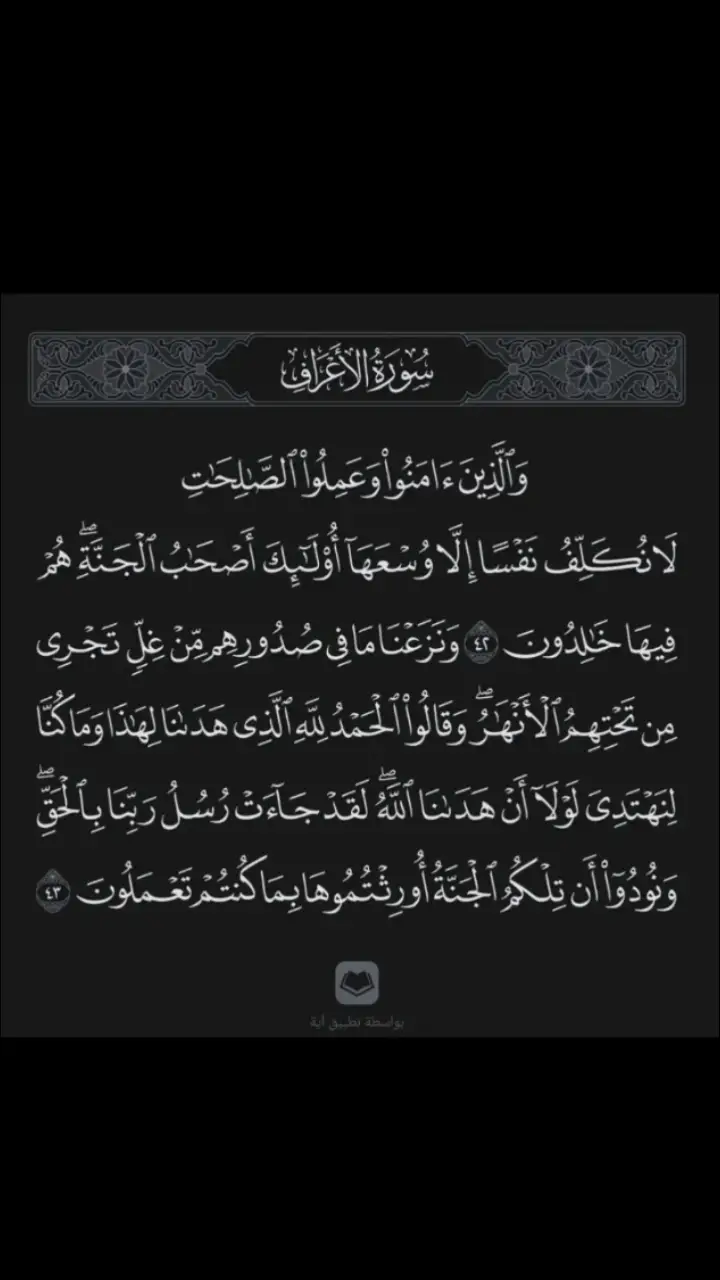 سُورَةُ الْأَعْرَافِ
وَٱلَّذِينَ ءَامَنُوا۟ وَعَمِلُوا۟ ٱلصَّٰلِحَٰتِ
لَا نُكَلِّفُ نَفْسًا إِلَّا وُسْعَهَآ أُو۟لَٰٓئِكَ أَصْحَٰبُ ٱلْجَنَّةِۖ هُمْ
فِيهَا خَٰلِدُونَ ٤٢ وَنَزَعْنَا مَا فِى صُدُورِهِم مِّنْ غِلٍّ تَجْرِى
مِن تَحْتِهِمُ ٱلْأَنْهَٰرُۖ وَقَالُوا۟ ٱلْحَمْدُ لِلَّهِ ٱلَّذِى هَدَىٰنَا لِهَٰذَا وَمَا كُنَّا
لِنَهْتَدِىَ لَوْلَآ أَنْ هَدَىٰنَا ٱللَّهُۖ لَقَدْ جَآءَتْ رُسُلُ رَبِّنَا بِٱلْحَقِّۖ
وَنُودُوٓا۟ أَن تِلْكُمُ ٱلْجَنَّةُ أُورِثْتُمُوهَا بِمَا كُنتُمْ تَعْمَلُونَ ٤٣
بواسطة تطبيق آية